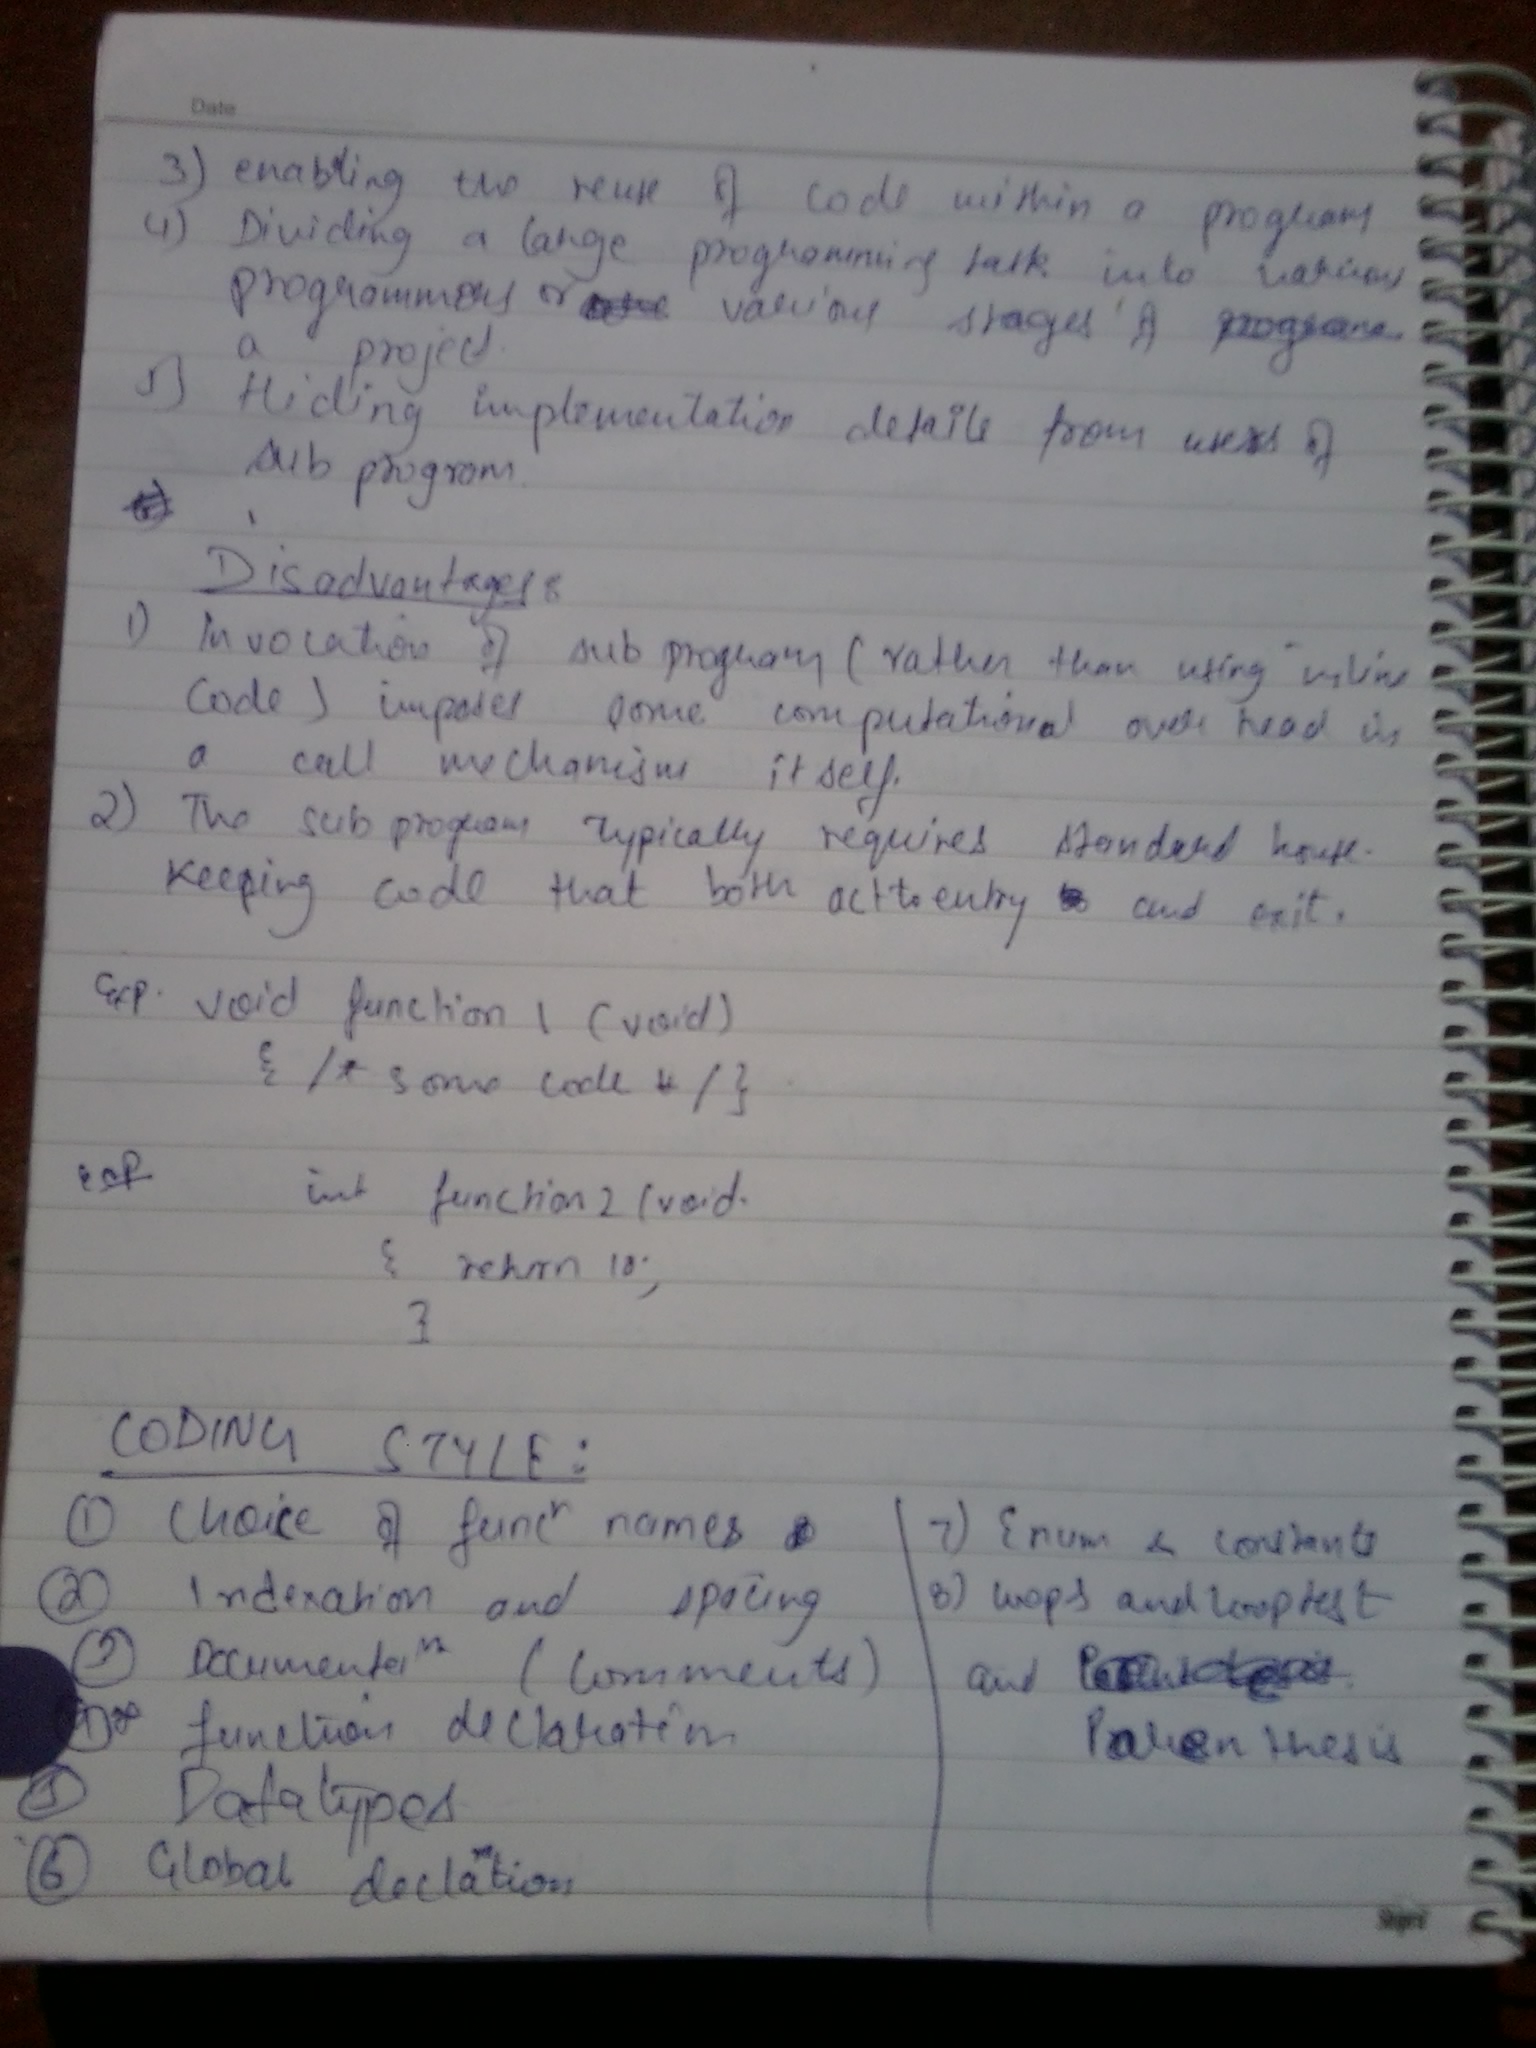 Date
3) enabling the reuse of code within a program
4) Dividing a large programming task into various
programmers or various stages of
a project.
5) Hiding implementation details from users of
sub program.
Disadvantages:
1) Invocation of sub program (rather than using inline
code) imposes some computational over head in
a call mechanism itself.
2) The sub program typically requires standard house-
keeping code that both act to entry and exit.
Exp. void function 1 (void)
{ /* some code */ }
exp int function 2 (void.
{ return 10;
}
CODING STYLE:
① Choice of funcⁿ names
② Indexation and spacing
③ Documentatiⁿ (Comments)
④ function declaration
⑤ Datatypes
⑥ Global declation
7) Enum & constants
8) loops and loop test
and
Parenthesis
Shipra